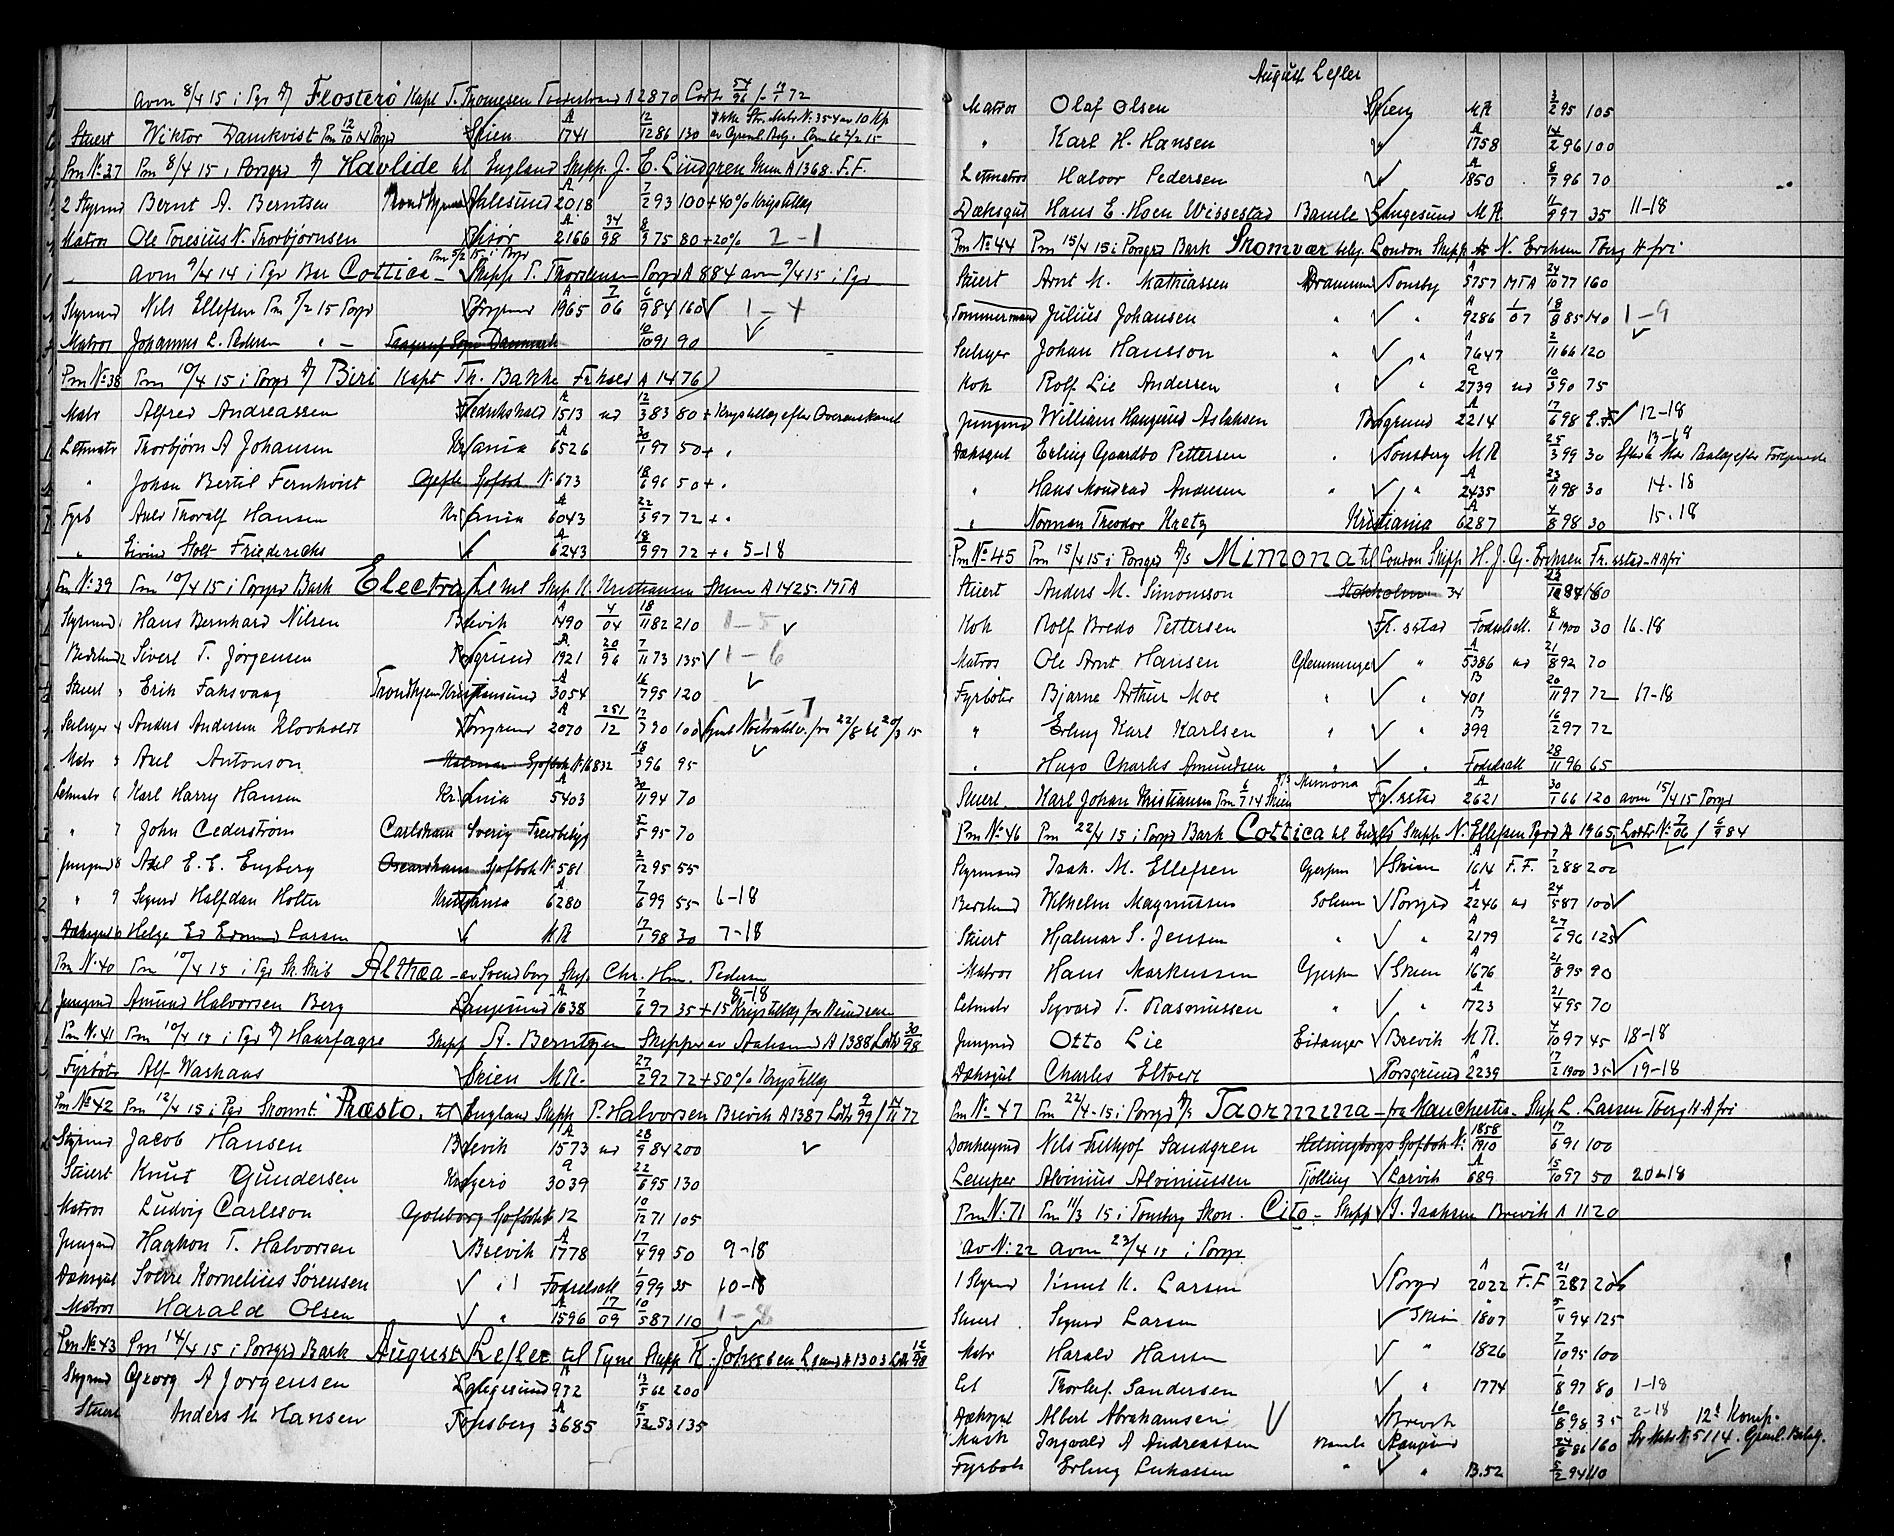 avm 8/4 15 i Pgr D/ Flosterö Kapt T. Thomesen Tvedestrand A 2870 Lods 54/96 1/1 72
Stuert Wiktor Damkvist Pm 12/10 14 Porgr Skien A 1741 12/12 86 130
Pm No 37 Pm 8/4 15 i Porsgr D/ Havlide til England Skipp. J. E. Lindgren Skien A 1368. F.F.
2 Styrmd Bernt A. Berntsen Trondhjem Aalesund A 2018 7/2 93 100 + 40% Krigstillæg
Matros Ole Toresius N. Thorbjørnsen Risør A 2166 34/98 8/9 75 80 + 20% 2-1
avm 9/4 14 i Pgr Bk Cottica Skipp T. Thorstensen Porsgr A 884 avm 9/4 15 i Pgr
Styrmd Nils Ellefsen Pm 15 Porgr Porsgrund A 1965 7/06 6/9 84 160 1-4
Matros Johannes L. Pedersen " - Danmark 10/10 91 90
Pm No 38 Pm 10/4 15 i Porgr D/ Biri Kapt Th. Bakke Frhald A 1476
Matr Alfred Andreassen Fredrikshald A 1513 ud 12/3 83 80 + Krigstillæg efter Overenskomst
Letmatr Thorbjørn A Johansen Kr.ania A 6526 30/1 97 50 + "
" Johan Bertil Fernkvist Gefle Sjøfbok N. 673 18/6 96 50 + "
Fyrb Anders Thoralf Hansen Kr.ania A 6043 22/3 97 72 + "
" Eivind Holt Friederichs " A 6243 18/9 97 72 + " 5-18
Pm No 39 Pm 10/4 15 i Porsgr Bark Electra til Skip N. Kristiansen Skien A 1425. MTA
Styrmd 1 Hans Bernhard Nilsen Brevik A 1490 4/04 18/11 82 210 1-5
Bedstmd 2 Sivert T. Jørgensen Porsgrund A 1921 20/96 7/11 73 135 1-6
Stuert 3 Erik Faksvaag Trondhjem Kristiansund A 3054 16/7 95 120
Seilmager 4 Anders Andersen Klovholt Porsgrund A 2070 251/12 12/7 90 100 1-7
Matr 5 Axel Antonson Kalmar Sjøfbok N. 16832 18/3 96 95
Letmatr 6 Karl Harry Hansen Kr.ania A 5403 30/11 94 70
" 7 John Cederström Carlsham Sverig 5/5 95 70
Jungmd 8 Axel E. E. Engberg Oscarshamn Sjøfbok N. 581 2/12 95 55
" 9 Sigurd Halfdan Holter Kristiania A 6280 7/6 99 55 6-18
Dæksgut 10 Helge Ed Edmund Larsen " MR 12/1 98 30 7-18
Pm No 40 Pm 10/4 15 i Pgr Sk. Skib Althæa - av Svendborg Skip Chr. Hm. Pedersen
Jungmd Amund Halvorsen Berg Langesund A 1638 7/6 97 35 + 15 Krigstillæg 8-18
Pm No 41 Pm 10/4 15 i Pgr D/ Haarfagre Skipp A. Berntzen Skipper av Aalesund A 1388 Lods 30/98
Fyrbøter Alf Warhaas Skien MR. 27/2 92 72 + 50% Krigstillæg
Pm No 42 Pm 12/4 15 i Pgr Skonnt. Præsto. til England Skipp P. Halvorsen Brevik A 1387 Lods 9/99 4/11 77
Styrmd Jacob Hansen Brevik A 1573 ud 28/9 84 200
Stuert Knut Gundersen Kragerø A 3039 22/6 95 130
Matros Ludvig Carlsson Goteborg Sjofbok 12 10/12 71 105
Jungmd Haakon T. Halvorsen Brevik A 1778 17/4 99 50 9-18
Dæksgut Sverre Kornelius Sørensen " Fødselsatt 1/9 99 35 10-18
Matros Harald Olsen " A 1596 17/09 10/5 87 110 1-8
Pm No 43 Pm 14/4 15 i Porsgr Bark August Lefler til Tyne Skipp K. Johnsen A 1303 Lods 12/98
Styrmd Georg A Jorgensen Langesund A 972 13/5 62 200
Stuert Anders M Hansen Tønsberg A 3685 15/12 53 135
August Lefler
Matros Olaf Olsen Skien MR 3/2 95 105
" Karl H. Hansen " A 1758 14/2 96 100
Letmatros Halvor Pedersen " A 1850 8/7 96 70
Dæksgut Hans E. Hoen Wissestad Bamle Langesund MR. 11/9 97 35 11-18
Pm No 44 Pm 15/4 15 i Porsgr Bark Skomvær London Skipp N. Erichsen Tberg A fri
Stuert Arnt M. Mathiassen Drammen Tonsbg A 5757 MTA 24/10 77 160
Tommermand Julius Johansen " " A 9286 1/07 18/8 85 140 1-9
Seilmager Johan Hansson " " A 7647 2/11 66 120
Kok Rolf Lie Andersen " " A 2739 ud 10/3 90 75
Jungmd William Haugund Aslaksen Porsgrund A 2214 17/6 98 12-18
Dæksgut Erling Gaardbo Pettersen " Tonsberg MR 25/3 99 30 13-18
" Hans Monrad Andresen " " A 2435 23/11 98 30 14-18
" Norman Theodor Kretz Kristiania A 6287 4/8 98 30 15-18
Pm No 45 Pm 15/4 15 i Porsgr D/S Mimona til London Skipp H. J. G. Erichsen Fr.kstad A fri
Stuert Anders M. Simonsson Stokholm 34 84 160
Kok Rolf Bredo Pettersen Fr.kstad Fødselsatt. 8/1 1900 30 16-18
Matros Ole Arnt Hansen Glemminge " A 5386 ud 21/8 92 70
Fyrbøter Bjarne Arthur Moe " " B 401 20/11 97 72 17-18
" Erling Karl Karlsen " " B 399 16/2 97 72
" Hugo Charles Amundsen " " Fødselsatt 28/11 96 65
Stuert Karl Johan Kristiansen Pm 6/7 14 Skien D/S Mimona Fr.kstad A 2621 30/1 66 120 avm 15/4 15 Porgr
Pm No 46 Pm 22/4 15 i Porgr Bark Cottica til Engld Skipp N. Ellefsen Pgrd A 1965, Lods No 7/06 / 6/9 84
Styrmand Isak M. Ellefsen Gjerpen Skien A 1614 F.F. 7/2 88 200
Bedstmd Wilhelm Magnussen Solum Porsgrd A 2246 ud 24/5 87 100
Stuert Hjalmar S. Jensen " " A 2179 27/6 96 125
Matros Hans Markussen Gjerpen Skien A 1676 21/8 95 90
Letmatr Sigvard T. Rasmussen " " A 1723 21/4 95 70
Jungmd Otto Lie Eidanger Brevik MR. 4/10 97 45 18-18
Dæksgut Charles Eltvedt Porsgrund 2239 17/2 1900 35 19-18
Pm No 47 Pm 22/4-15 i Porsgr D/S Taormina - fra Manchester - Skip L. Larsen Tberg A fri
Donkeymd Nils Frithjof Sandgren Helsingborgs Sjofbok No 1858/1910 17/6 91 100
Lemper Alvinius Alvinussen Tjølling Larvik A 689 15/10 97 50 20-18
Pm No 71 Pm 11/3 15 i Tonsberg Skon. Cito - Skipp J. Isaksen Brevik A 1120
Av No 22 avm 23/4 15 i Porgr
1 Styrmd K. Larsen Porsgr A 2022 F.F 21/2 83 200
Stuert Sigurd Larsen Skien A 1807 5/4 94 125
Matr Harald Hansen " 1826 7/10 95 100
Let Thorleif Sandersen " 1774 1/8 97 80 1-18
Dæksgut Albert Abrahamsen Brevik 10/8 98 35 2-18 12t Komp.
Mask Ingvald A Andreassen Bamle Langesund 24/8 86 160 Se Matr N. 5114. Grenl. Bdeg.
Fyrbøt Erling Lukassen " " B. 52 5/2 94 110